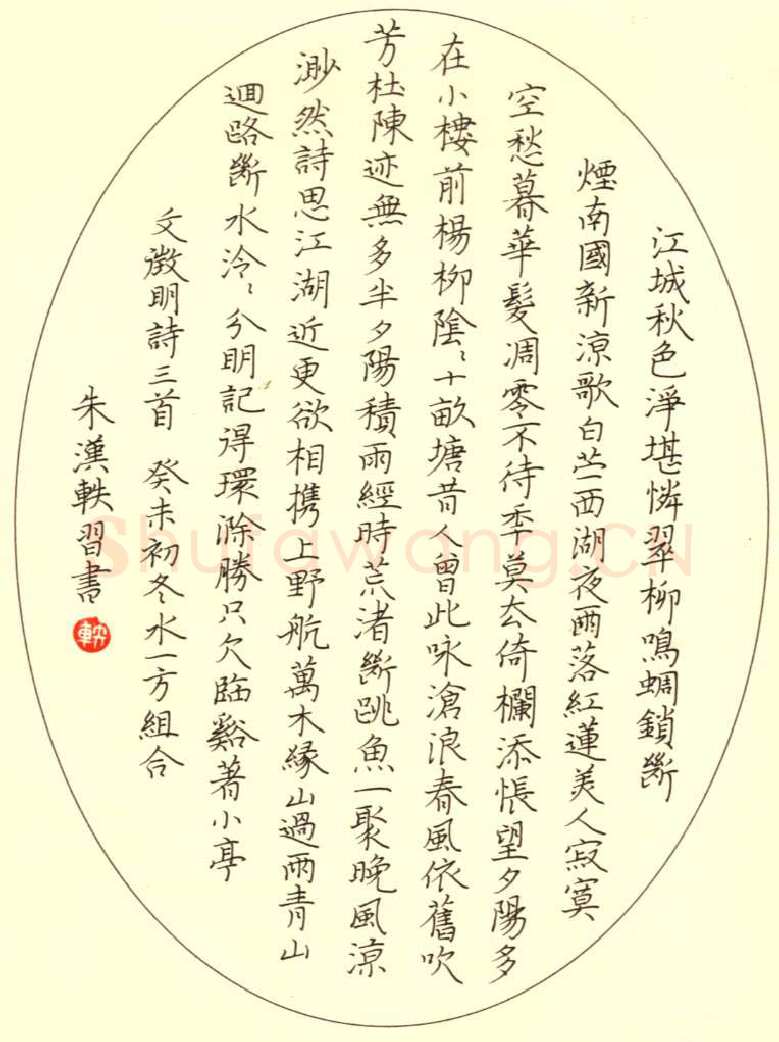 江城秋色淨堪憐翠柳鳴蜩鎖斷
煙南國新涼歌白苧西湖夜雨落紅蓮美人寂寞
空愁暮華髮凋零不待年莫去倚欄添悵望夕陽多
在小樓前楊柳陰〻十畝塘昔人曾此咏滄浪春風依舊吹
芳杜陳迹無多半夕陽積雨經時荒渚斷跳魚一聚晚風涼
渺然詩思江湖近更欲相攜上野航萬木緣山過雨青山
迴路斷水泠〻分明記得環滁勝只欠臨谿著小亭
文徵明詩三首 癸未初冬水一方組合
朱漢軼習書
軼
Shufawang.CN